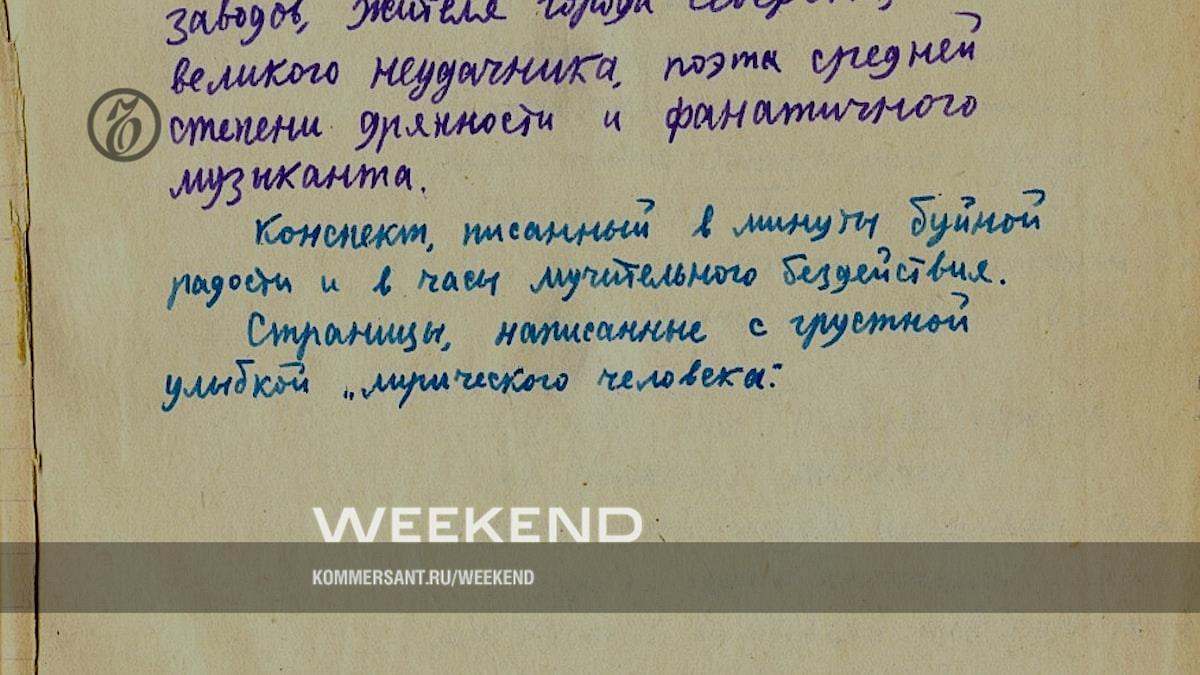 заводов, жителя города
великого неудачника, поэта средней
степени дрянности и фанатичного
музыканта.
Конспект, писанный в минуты буйной
радости и в часы мучительного бездействия.
Страницы, написанные с грустной
улыбкой „лирического человека".
WEEKEND
KOMMERSANT.RU/WEEKEND